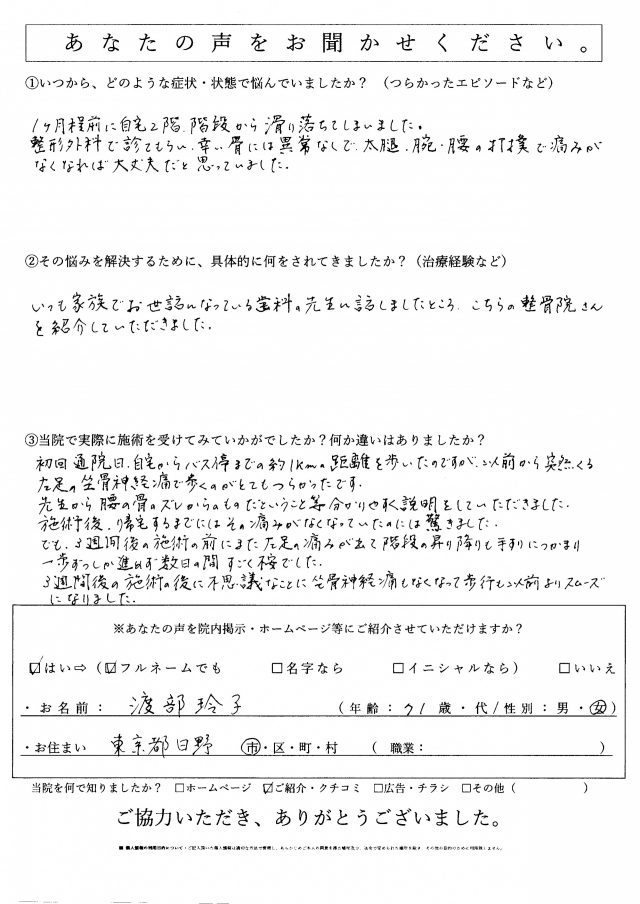 あなたの声をお聞かせください。
①いつから、どのような症状・状態で悩んでいましたか？（つらかったエピソードなど）
1ヶ月程前に自宅2階、階段から滑り落ちてしまいました。
整形外科で診てもらい、幸い骨には異常なしで、太腿、腕・腰の打撲で痛みが
なくなれば大丈夫だと思っていました。
②その悩みを解決するために、具体的に何をされてきましたか？（治療経験など）
いつも家族でお世話になっている歯科の先生に話しましたところ、こちらの整骨院さん
を紹介していただきました。
③当院で実際に施術を受けてみていかがでしたか？何か違いはありましたか？
初回通院日、自宅からバス停までの約1kmの距離を歩いたのですが、以前から突然くる
左足の坐骨神経痛で歩くのがとてもつらかったです。
先生から腰の骨のズレからのものだということ等分かりやすく説明をしていただきました。
施術後、帰宅するまでにはその痛みがなくなっていたのには驚きました。
でも、3週間後の施術の前にまた左足の痛みが出て階段の昇り降りも手すりにつかまり
一歩ずつしか進めず数日の間すごく不安でした。
3週間後の施術の後に不思議なことに坐骨神経痛もなくなって歩行も以前よりスムーズ
になりました。
※あなたの声を院内掲示・ホームページ等にご紹介させていただけますか？
☑はい⇨（☑フルネームでも □名字なら □イニシャルなら） □いいえ
・お名前： 渡部玲子 （年齢：71歳・代/性別：男・女）
・お住まい 東京都日野 市・区・町・村 （職業： ）
当院を何で知りましたか？ □ホームページ ☑ご紹介・クチコミ □広告・チラシ □その他（ ）
ご協力いただき、ありがとうございました。